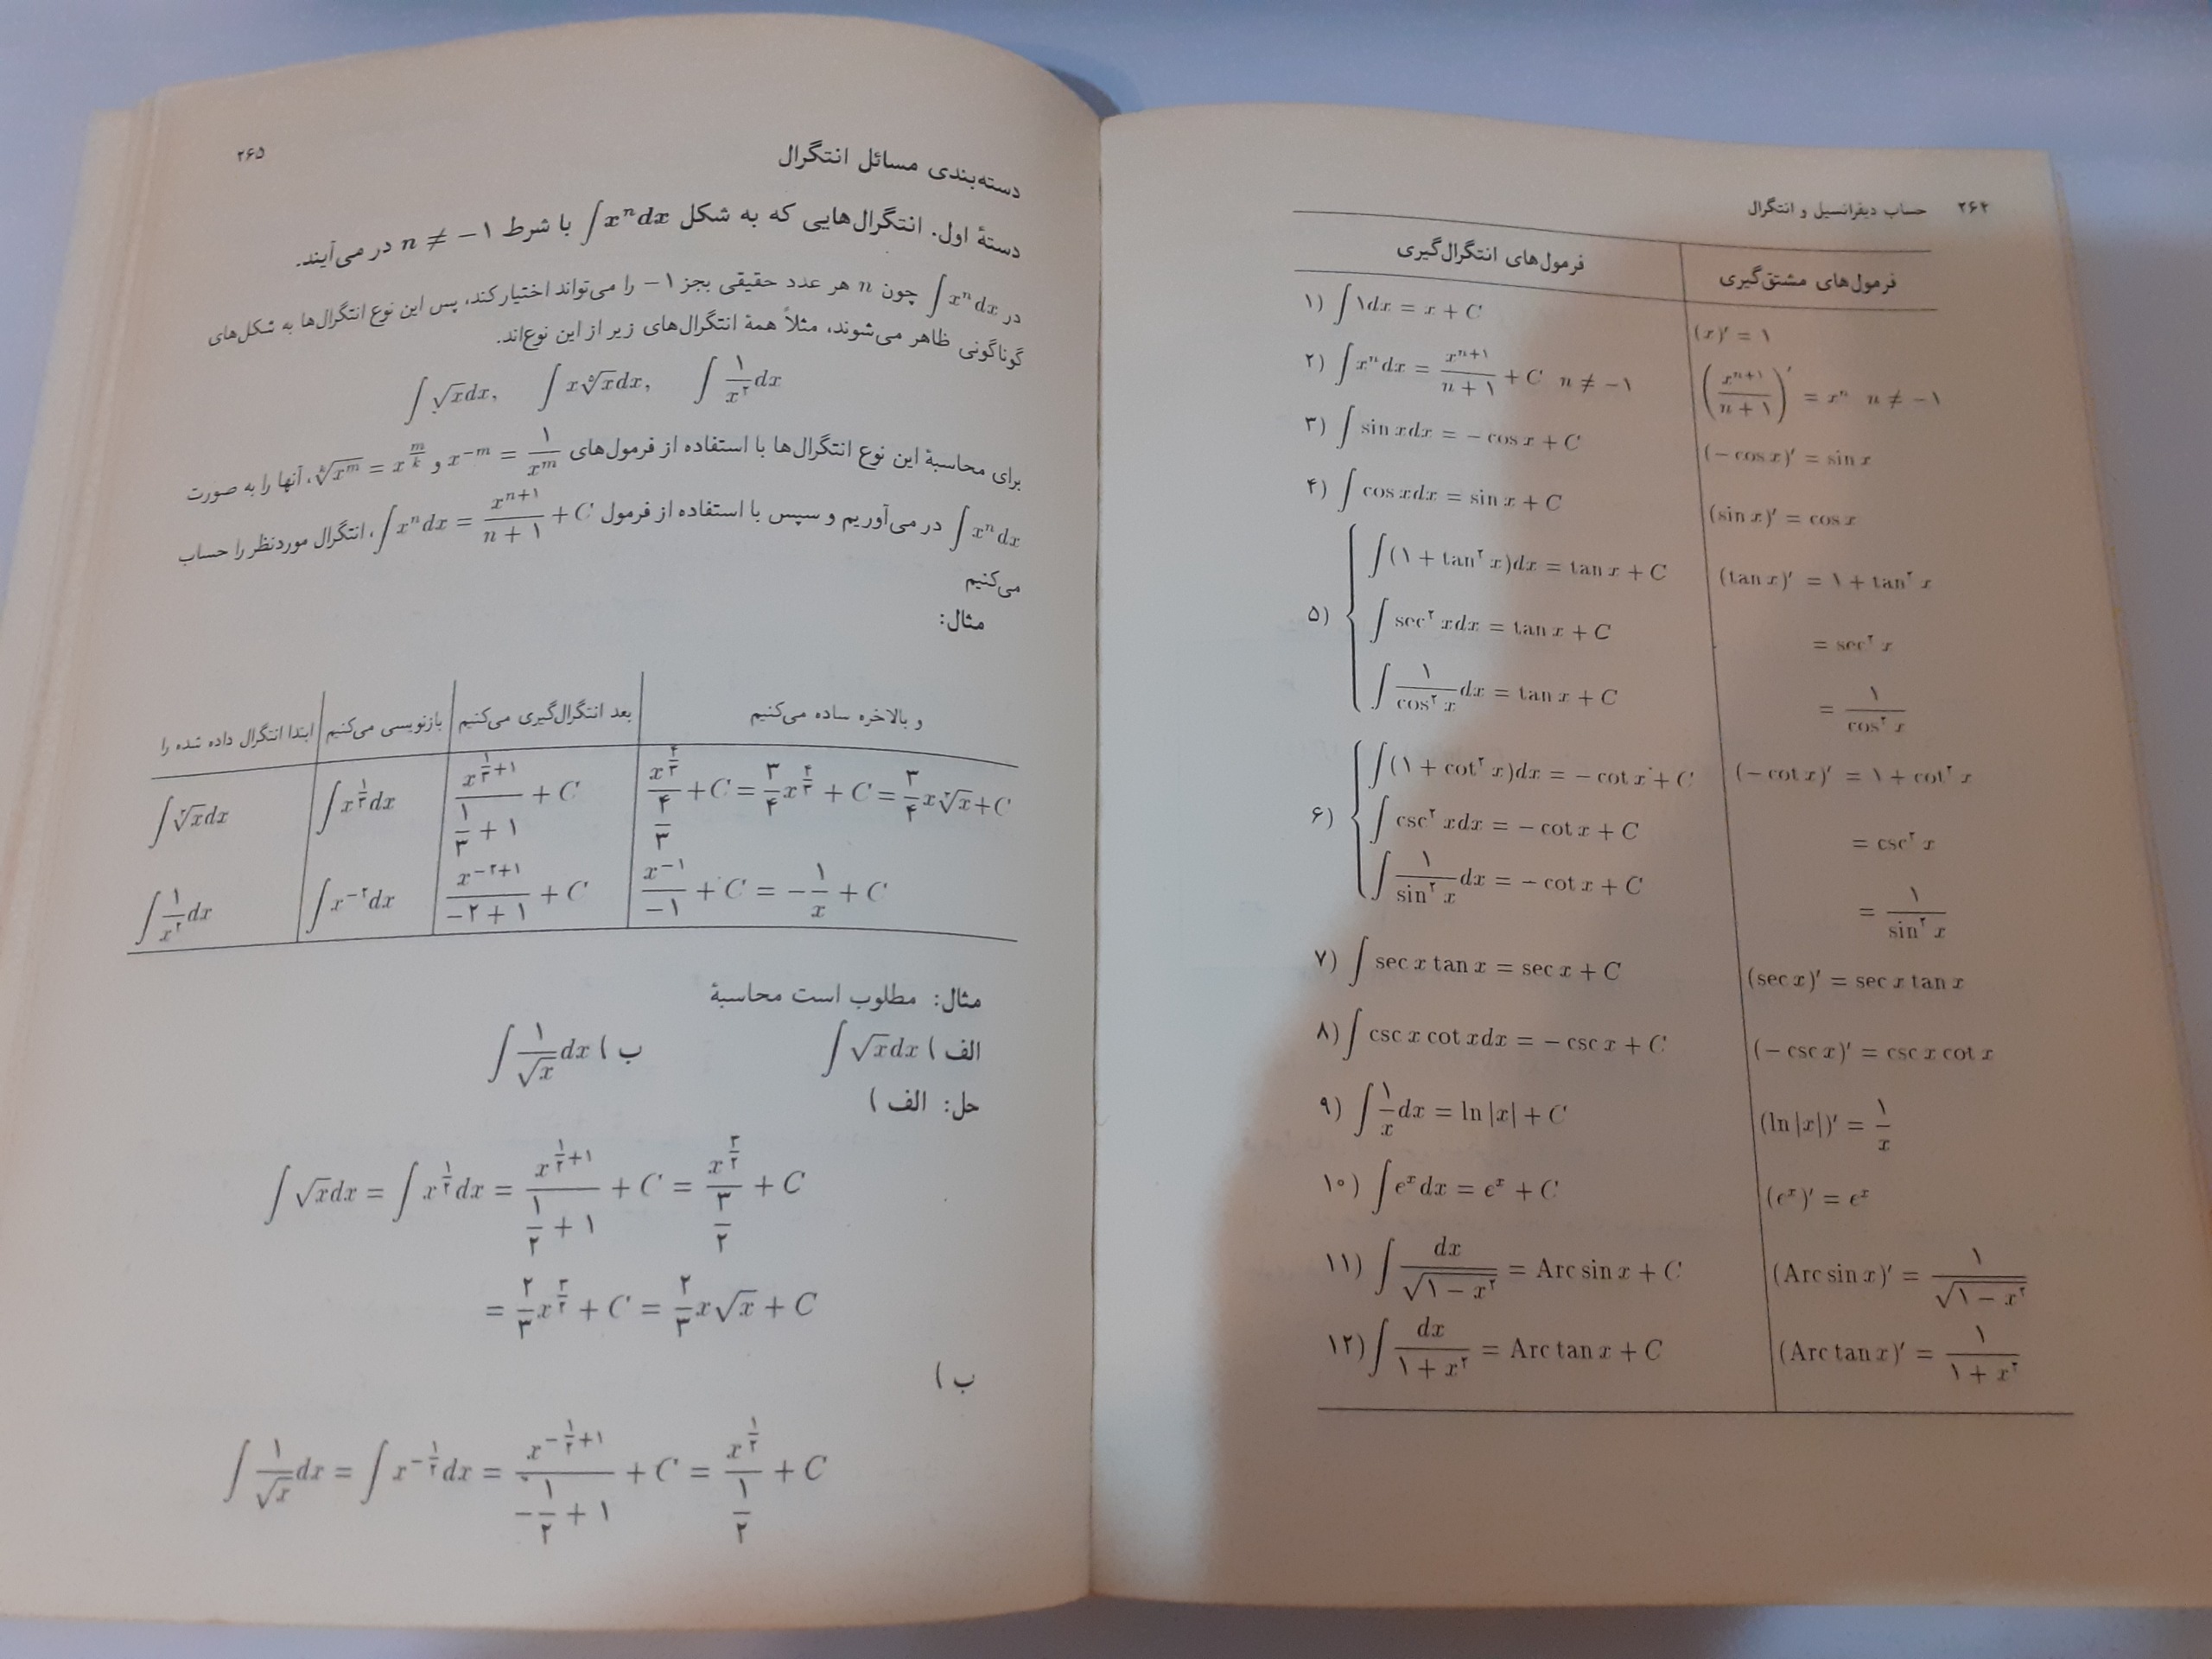 ۲۶۴ حساب دیفرانسیل و انتگرال
فرمول‌های مشتق‌گیری | فرمول‌های انتگرال‌گیری
(x)′ = ۱ | ۱) ∫۱dx = x + C
(xⁿ⁺¹/(n + ۱))′ = xⁿ n ≠ −۱ | ۲) ∫xⁿdx = xⁿ⁺¹/(n + ۱) + C n ≠ −۱
(− cos x)′ = sin x | ۳) ∫ sin xdx = − cos x + C
(sin x)′ = cos x | ۴) ∫ cos xdx = sin x + C
(tan x)′ = ۱ + tan^۲ x | ۵) ∫(۱ + tan^۲ x)dx = tan x + C
= sec^۲ x | ∫ sec^۲ xdx = tan x + C
= ۱/cos^۲ x | ∫ ۱/cos^۲ x dx = tan x + C
(− cot x)′ = ۱ + cot^۲ x | ۶) ∫(۱ + cot^۲ x)dx = − cot x + C
= csc^۲ x | ∫ csc^۲ xdx = − cot x + C
= ۱/sin^۲ x | ∫ ۱/sin^۲ x dx = − cot x + C
(sec x)′ = sec x tan x | ۷) ∫ sec x tan x = sec x + C
(− csc x)′ = csc x cot x | ۸) ∫ csc x cot xdx = − csc x + C
(ln |x|)′ = ۱/x | ۹) ∫ ۱/x dx = ln |x| + C
(eˣ)′ = eˣ | ۱۰) ∫ eˣdx = eˣ + C
(Arc sin x)′ = ۱/√(۱ − x^۲) | ۱۱) ∫ dx/√(۱ − x^۲) = Arc sin x + C
(Arc tan x)′ = ۱/(۱ + x^۲) | ۱۲) ∫ dx/(۱ + x^۲) = Arc tan x + C
دسته‌بندی مسائل انتگرال ۲۶۵
دستهٔ اول. انتگرال‌هایی که به شکل ∫xⁿdx با شرط n ≠ −۱ در می‌آیند.
در ∫xⁿdx چون n هر عدد حقیقی بجز ۱− را می‌تواند اختیار کند، پس این نوع انتگرال‌ها به شکل‌های
گوناگونی ظاهر می‌شوند، مثلاً همهٔ انتگرال‌های زیر از این نوع‌اند.
∫ √x dx, ∫ x ⁵√x dx, ∫ ۱/x^۲ dx
برای محاسبهٔ این نوع انتگرال‌ها با استفاده از فرمول‌های x^(−m) = ۱/x^m و ᵏ√(x^m) = x^(m/k)، آنها را به صورت
∫xⁿdx در می‌آوریم و سپس با استفاده از فرمول ∫xⁿdx = xⁿ⁺¹/(n + ۱) + C، انتگرال موردنظر را حساب
می‌کنیم
مثال:
ابتدا انتگرال داده شده را | بازنویسی می‌کنیم | بعد انتگرال‌گیری می‌کنیم | و بالاخره ساده می‌کنیم
∫ ³√x dx | ∫ x^(۱/۳) dx | x^(۱/۳+۱)/(۱/۳ + ۱) + C | x^(۴/۳)/(۴/۳) + C = ۳/۴ x^(۴/۳) + C = ۳/۴ x ³√x + C
∫ ۱/x^۲ dx | ∫ x^(−۲) dx | x^(−۲+۱)/(−۲ + ۱) + C | x^(−۱)/(−۱) + C = −۱/x + C
مثال: مطلوب است محاسبهٔ
الف) ∫ √x dx ب) ∫ ۱/√x dx
حل: الف)
∫ √x dx = ∫ x^(۱/۲) dx = x^(۱/۲+۱)/(۱/۲ + ۱) + C = x^(۳/۲)/(۳/۲) + C
= ۲/۳ x^(۳/۲) + C = ۲/۳ x√x + C
ب)
∫ ۱/√x dx = ∫ x^(−۱/۲) dx = x^(−۱/۲+۱)/(−۱/۲ + ۱) + C = x^(۱/۲)/(۱/۲) + C